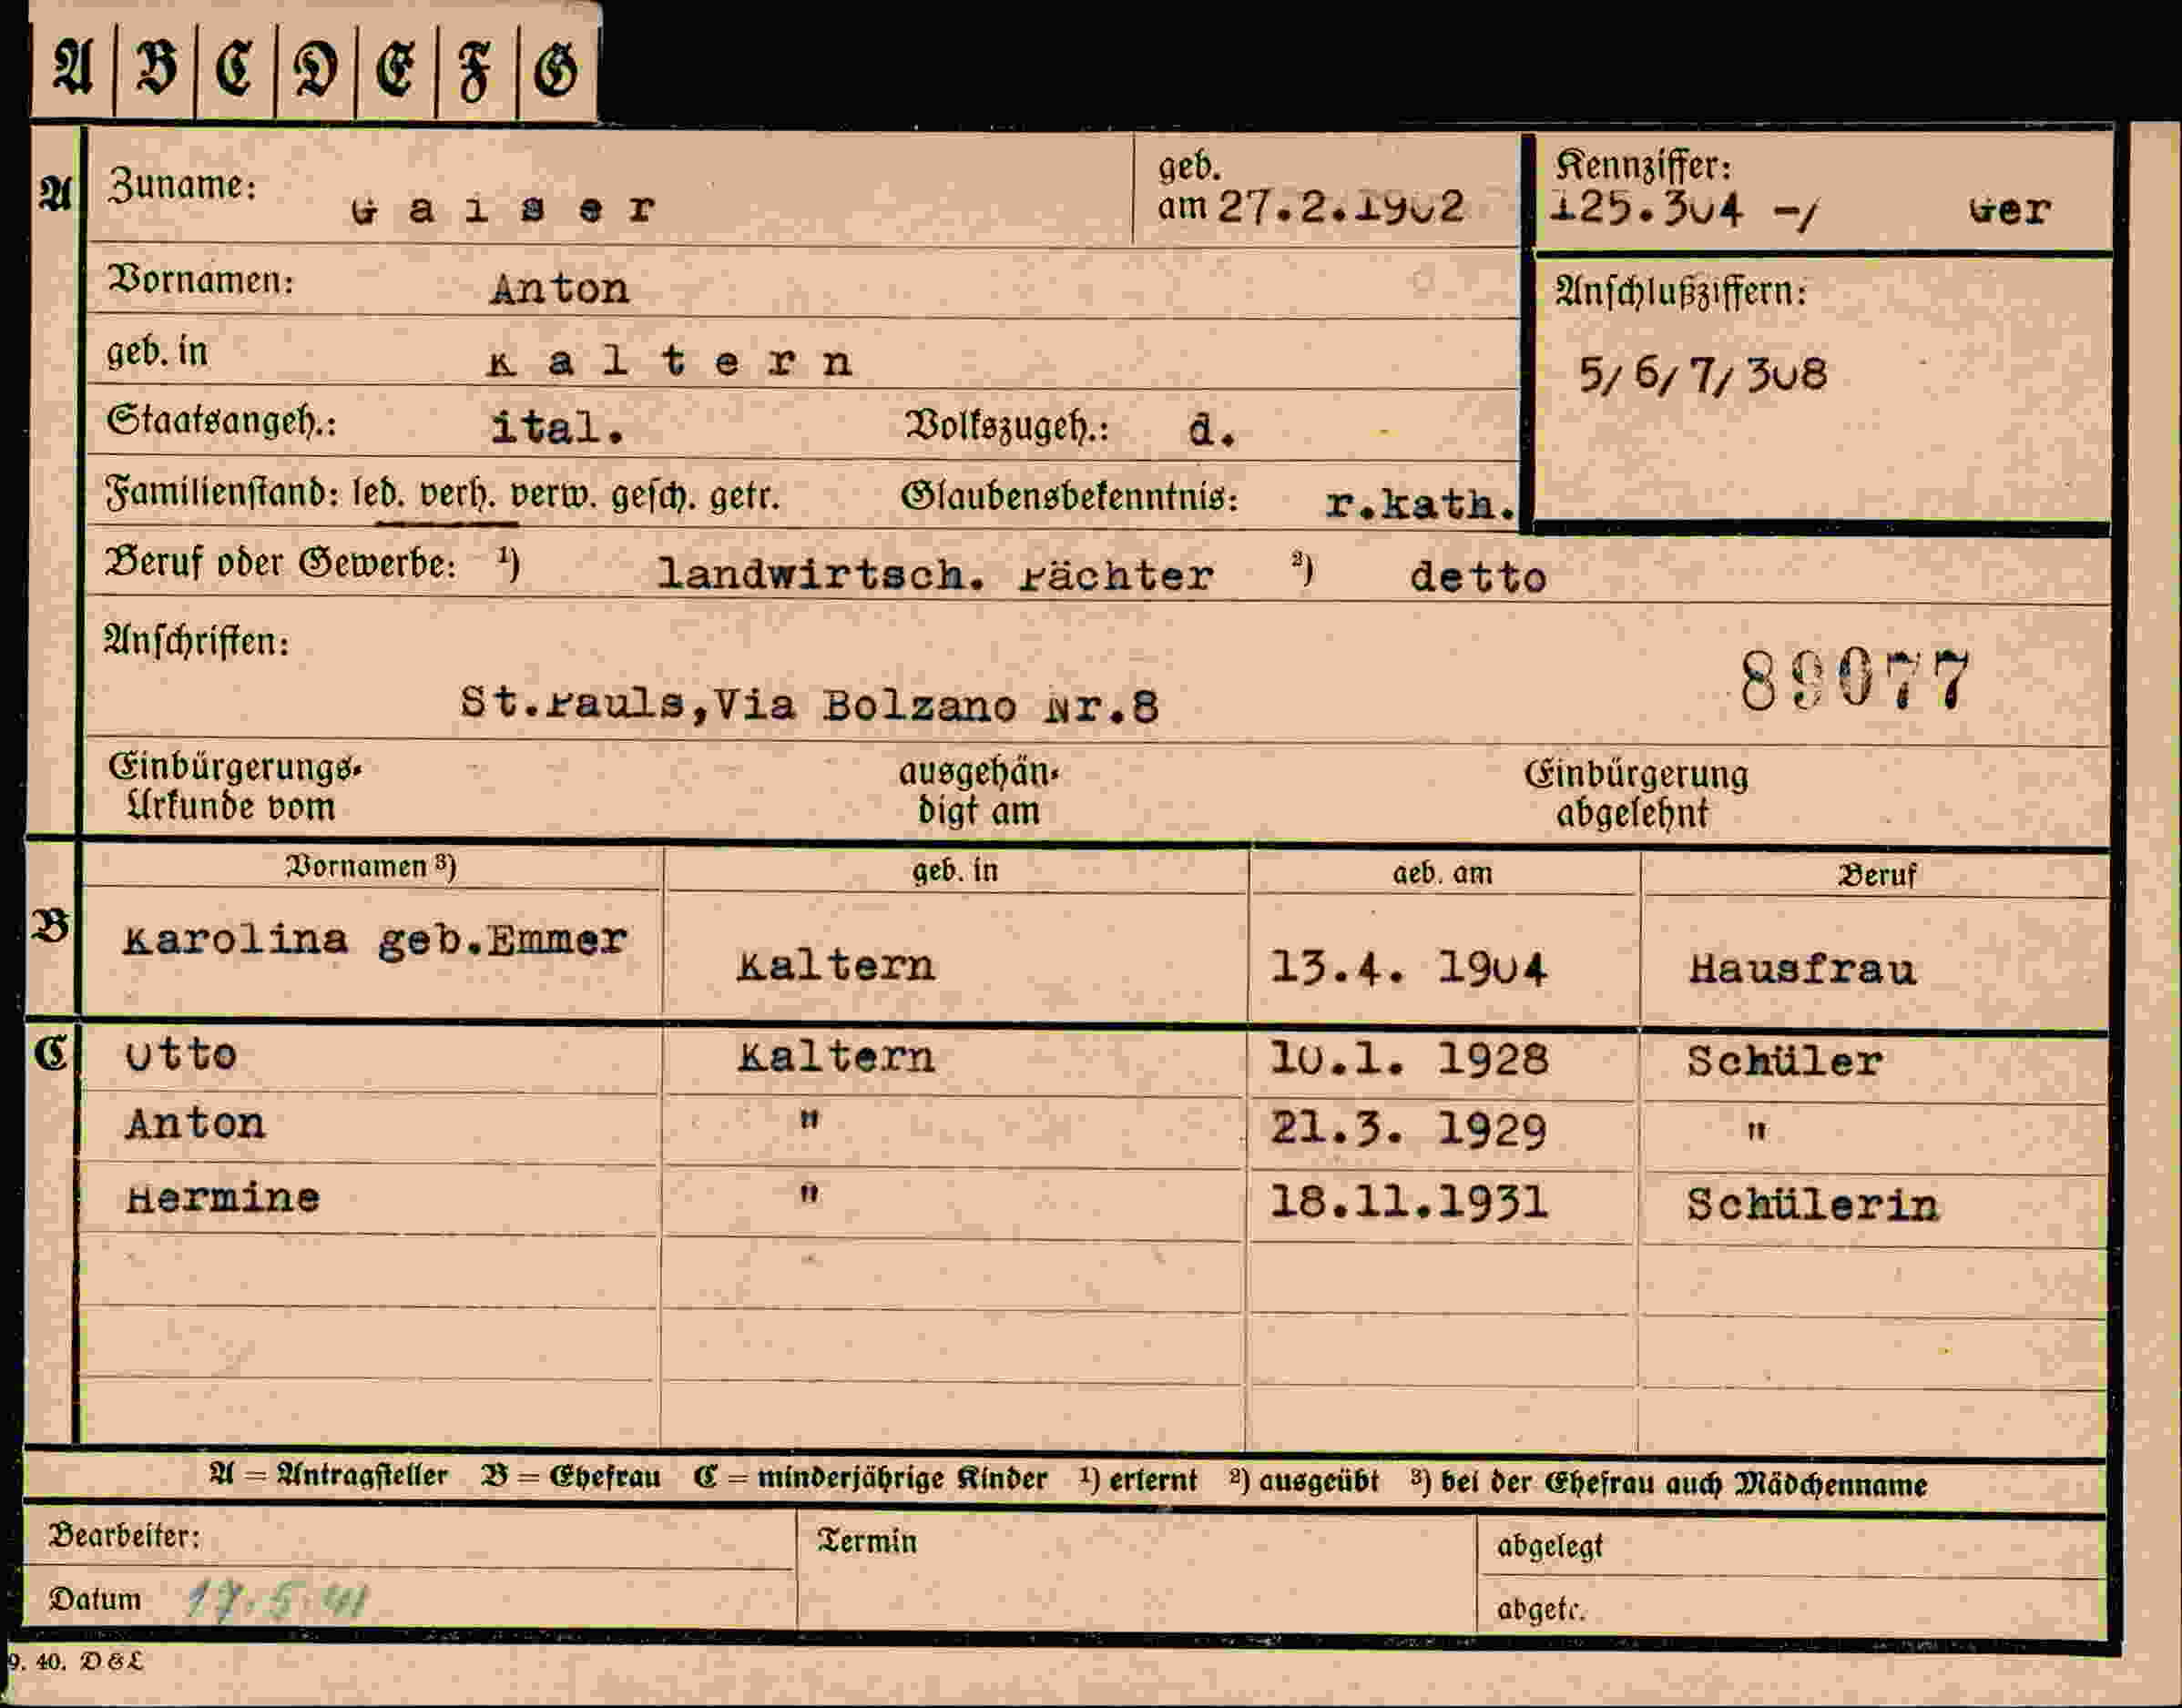 A B C D E F G
A Zuname: Gaiser geb. am 27.2.1902 Kennziffer: 125.304 -/ Ger
Vornamen: Anton Anschlußziffern:
geb. in Kaltern 5/6/7/308
Staatsangeh.: ital. Volkszugeh.: d.
Familienstand: led. verh. verw. gesch. getr. Glaubensbekenntnis: r.kath.
Beruf oder Gewerbe: 1) landwirtsch. Pächter 2) detto
Anschriften:
St.Pauls,Via Bolzano Nr.8 89077
Einbürgerungs- ausgehän- Einbürgerung
Urkunde vom digt am abgelehnt
Vornamen 3) geb. in geb. am Beruf
B Karolina geb.Emmer Kaltern 13.4. 1904 Hausfrau
C Otto Kaltern 10.1. 1928 Schüler
Anton " 21.3. 1929 "
Hermine " 18.11.1931 Schülerin
A = Antragsteller B = Ehefrau C = minderjährige Kinder 1) erlernt 2) ausgeübt 3) bei der Ehefrau auch Mädchenname
Bearbeiter: Termin abgelegt
Datum 17.5.41 abgetr.
9. 40. D&L